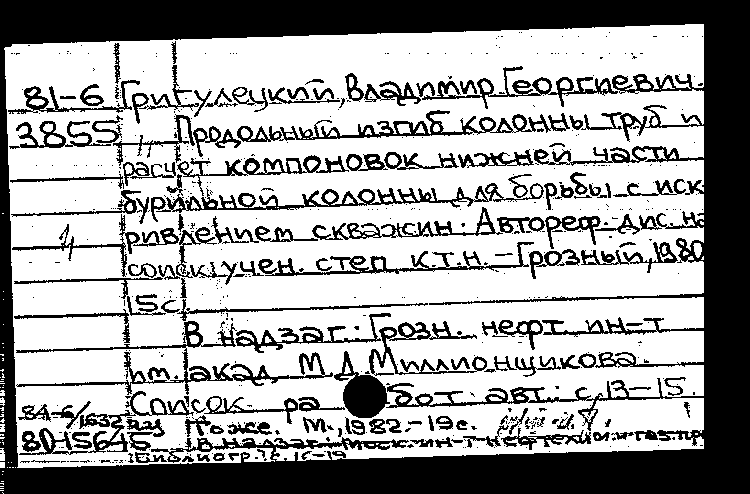 81-6 Григулецкий, Владимир Георгиевич.
3855 Продольный изгиб колонны труб и
расчет компоновок нижней части
бурильной колонны для борьбы с иск
ривлением скважин: Автореф. дис. на
соиск. учен. степ. к.т.н. - Грозный, 1980
15с.
В надзаг.: Грозн. нефт. ин-т
им. акад. М.Д. Миллионщикова.
Список работ авт.: с. 13-15.
84-6/1632 То же. М., 1982. - 19с.
80-15645 В надзаг.: Моск. ин-т нефтехим. и газ. пр
Библиогр.: с. 18-19